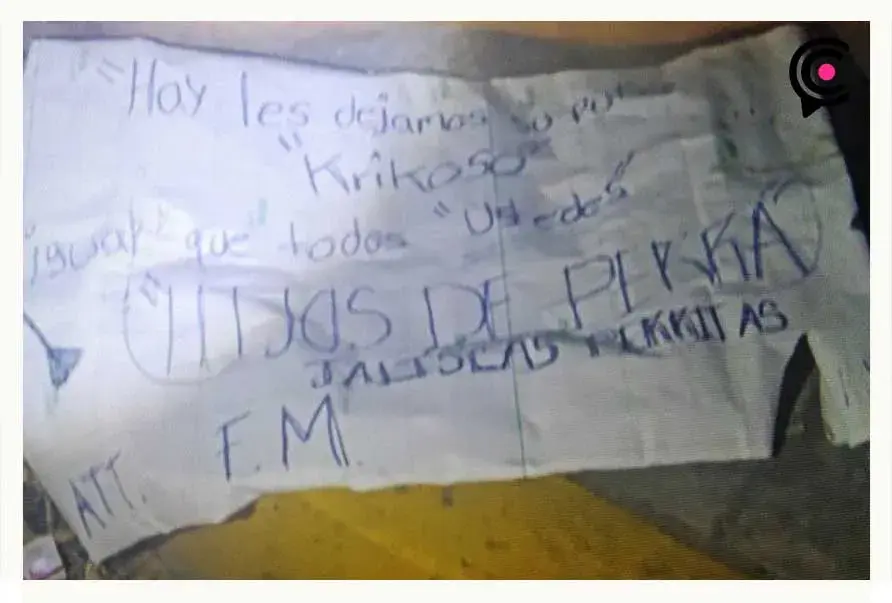 "Hay les dejamos su
"Krikoso"
igual que todos "Ustedes"
"HIJOS DE PERRA
JALISCAS PERRITAS
ATT. F.M.